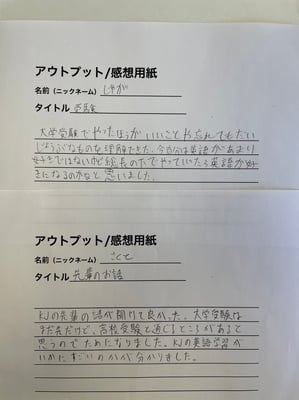 アウトプット/感想用紙
名前 (ニックネーム) しゃが
タイトル 受験
大学受験でやったほうがいいことや忘れてもだい
じょうぶなものな理解できた。今自分は英語があまり
好きではないけど総長の下でやっていたら英語が好
きになるのかなと思いました。
アウトプット/感想用紙
名前 (ニックネーム) さくと
タイトル 先輩のお話
KJの先輩の話が聞けて良かった。大学受験は
まだ先だけど、高校受験と通じるところがあると
思うのでためになりました。KJの英語学習が
いかにすごいのかが分かりました。